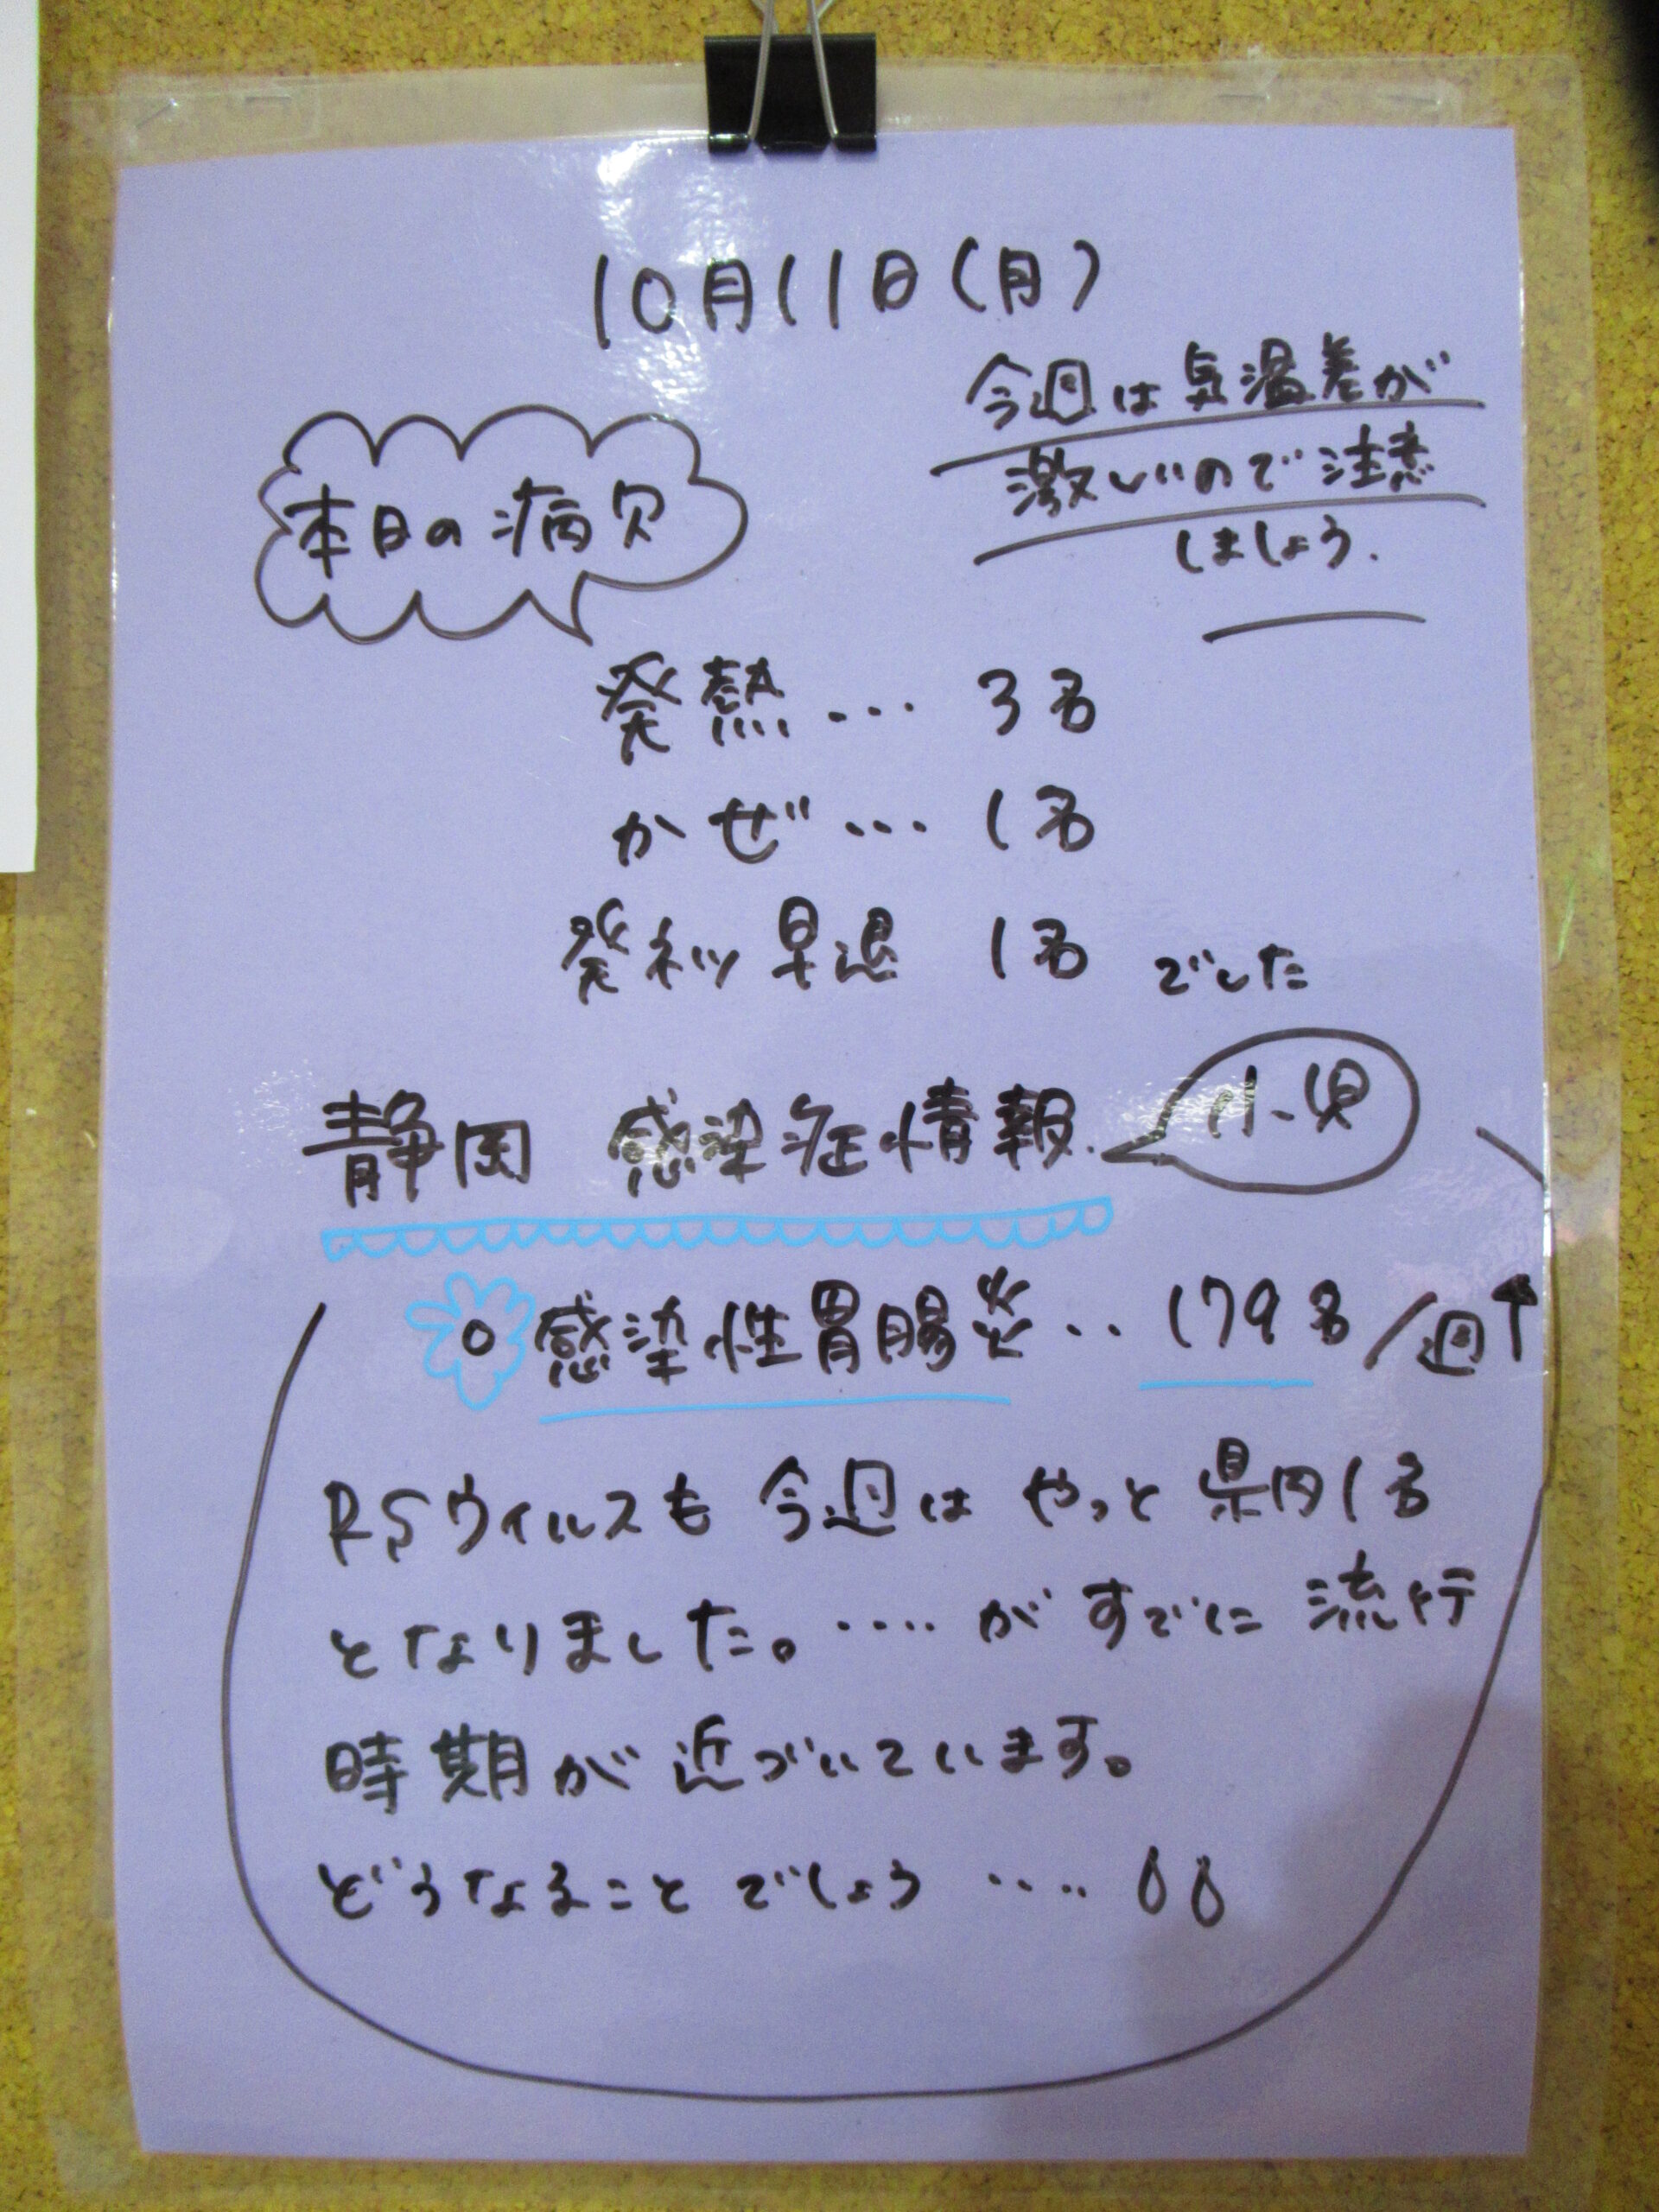 10月11日(月)
今週は気温差が
激しいので注意
しましょう.
本日の病欠
発熱... 3名
かぜ... 1名
発ネツ早退 1名 でした
静岡 感染症情報.
小児
感染性胃腸炎.. 179名/週↑
RSウィルスも今週はやっと県内1名
となりました。....がすでに流行
時期が近づいています。
どうなることでしょう....